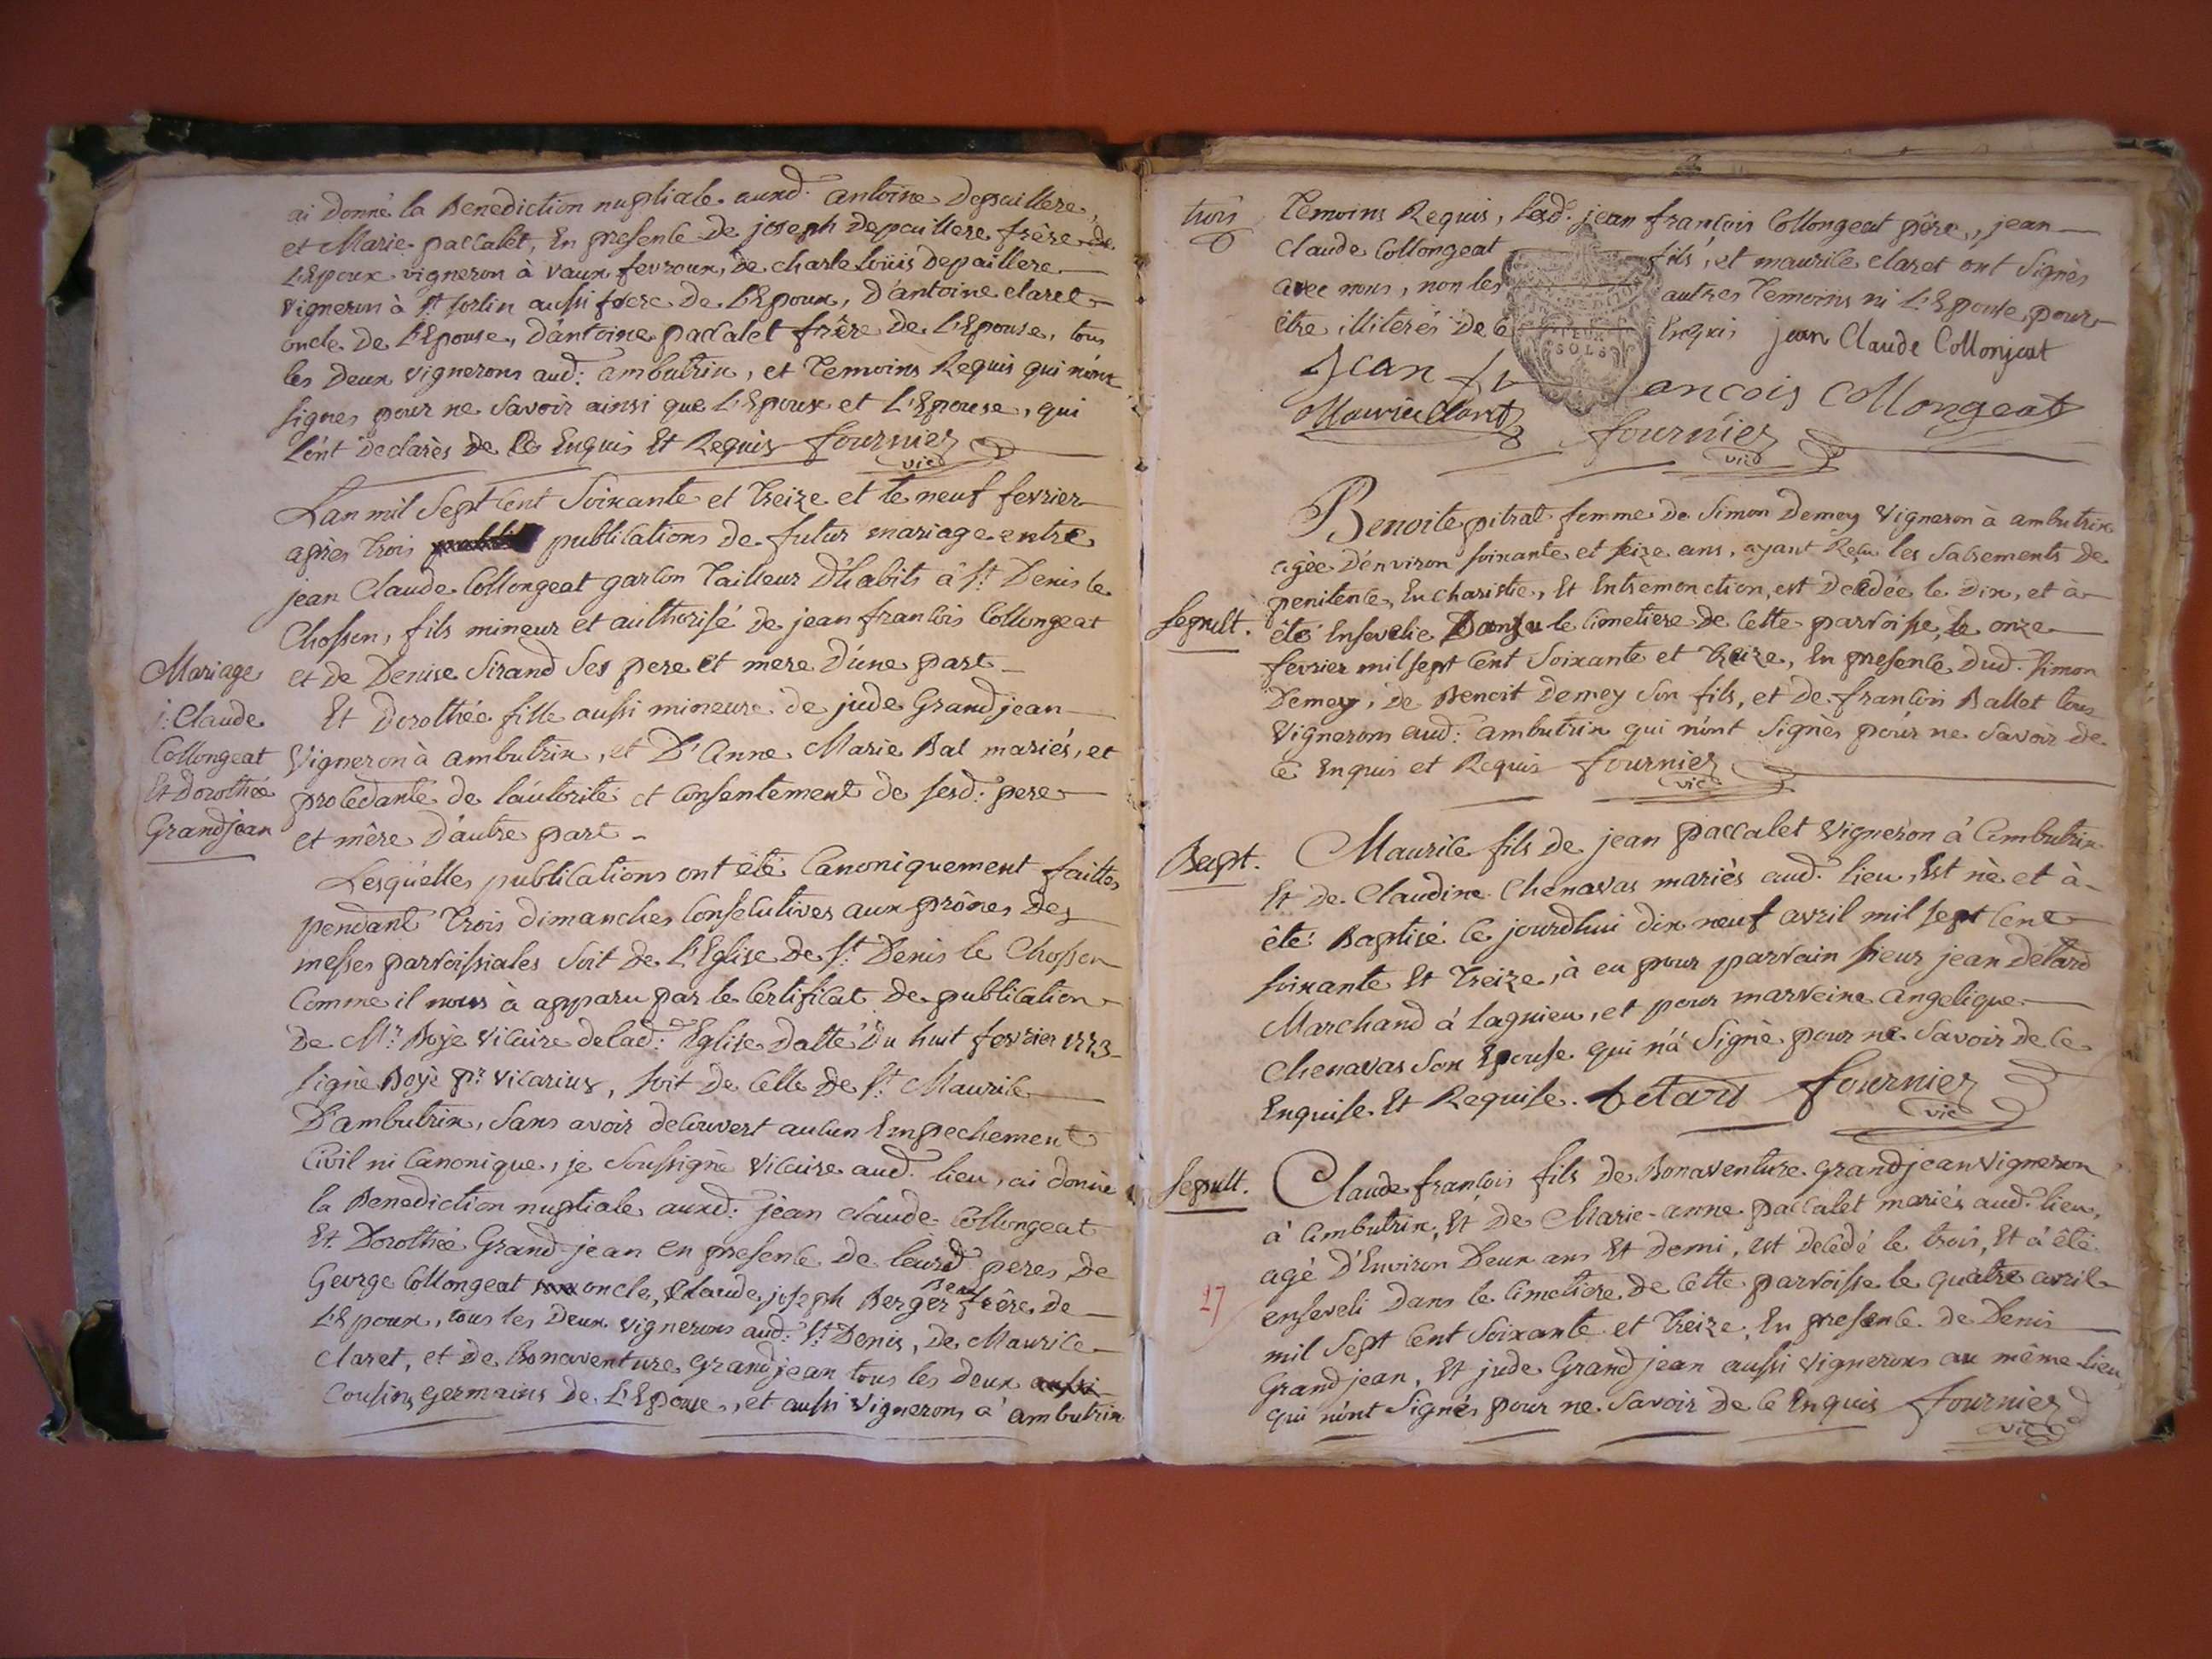 ai donné la Benediction nuptiale auxd. antoine Depaillere,
et Marie paccalet, En presence de joseph depaillere frère de
L'Epoux vigneron à vaux fevroux, de charle loüis depaillere
vigneron à St. sorlin aussi frere de L'Epoux, D'antoine claret
oncle de L'Epouse, D'antoine paccalet frêre de L'Epouse, tous
les deux vignerons aud: ambutrix, et Temoins Requis qui n'ont
signés pour ne savoir ainsi que L'Epoux et L'Epouse, qui
l'ont declarés de ce Enquis Et Requis fournier
vic
L'an mil sept cent soixante et treize et le neuf fevrier
après trois publications de futur mariage entre
jean Claude Collongeat garcon Tailleur D'habits à St. Denis le
Chosson, fils mineur et authorisé de jean francois Collongeat
et de Denise Sirand Ses pere et mere D'une part
Et Dorothée fille aussi mineure de jude Grandjean
Vigneron à ambutrix, et D'Anne Marie Bal mariés, et
procedante de l'autorité et consentement de sesd: pere
et mêre D'autre part
Mariage
j: Claude
Collongeat
Et dorothée
Grandjean
Lesquelles publications ont été Canoniquement faittes
pendant trois dimanches consecutives aux prônes des
messes parroissiales soit de L'Eglise de St. Denis le Chosson
comme il nous à apparu par le certificat de publication
de Mr. Boyé vicaire de lad: Eglise datté du huit fevrier 1773
signé Boyé pr. vicarius, soit de celle de St. Maurice
D'ambutrix, sans avoir decouvert aucun Empechement
civil ni canonique, je soussigné vicaire aud. lieu, ai donné
la Benediction nuptiale auxd: jean claude Collongeat
Et Dorothée Grand jean en presence de leursd peres, de
George Collongeat oncle, Claude joseph Berger Beau frêre de
L'Epoux, tous les deux vignerons aud: St. Denis, de Maurice
Claret, et de Bonaventure grandjean tous les deux aussi
cousins germains de L'Epouse, et aussi vignerons à ambutrix
trois
Temoins Requis, Lesd. jean francois Collongeat pêre, jean
claude Collongeat fils, et maurice claret ont signés
avec nous, non les autres Temoins ni L'Epouse, pour
être illiterés de ce Enquis jean Claude Collonjeat
SOLS
Jean francois collongeat
Maurice Claret
fournier
vic
Benoite pitrat femme de Simon Demey vigneron à ambutrix
agée d'environ soixante et seize ans, ayant Reçu les sacrements de
penitence, Eucharistie, Et Extremonction, est decedée le dix, et à
Sepult.
été Ensevelie Dans le cimetiere de cette parroisse, le onze
fevrier mil sept cent soixante et treize, En presence dud. Simon
Demey, de Benoit demey son fils, et de francois Ballet tous
vignerons aud: ambutrix qui n'ont signés pour ne savoir de
ce Enquis et Requis fournier
vic
Bapt.
Maurice fils de jean paccalet vigneron à ambutrix
Et de Claudine Chenavas mariés aud. lieu, Est né et à
êté Baptisé ce jourdhui dix neuf avril mil sept cent
soixante Et treize, à eu pour parrain sieur jean détard
Marchand à lagnieu, et pour marreine angelique
chenavas son Epouse qui n'a signé pour ne savoir de ce
Enquise Et Requise. detard fournier
vic
Sepult.
Claude francois fils de Bonaventure grandjean vigneron
à ambutrix, Et de Marie-anne paccalet mariés aud. lieu,
agé d'Environ Deux ans Et demi, est decedé le trois, Et à êté
enseveli dans le cimetiere de cette parroisse le quatre avril
17
mil sept cent soixante et treize, En presence de Denis
Grandjean, Et jude Grandjean aussi vignerons au même lieu,
qui n'ont signés pour ne savoir de ce Enquis fournier
vic